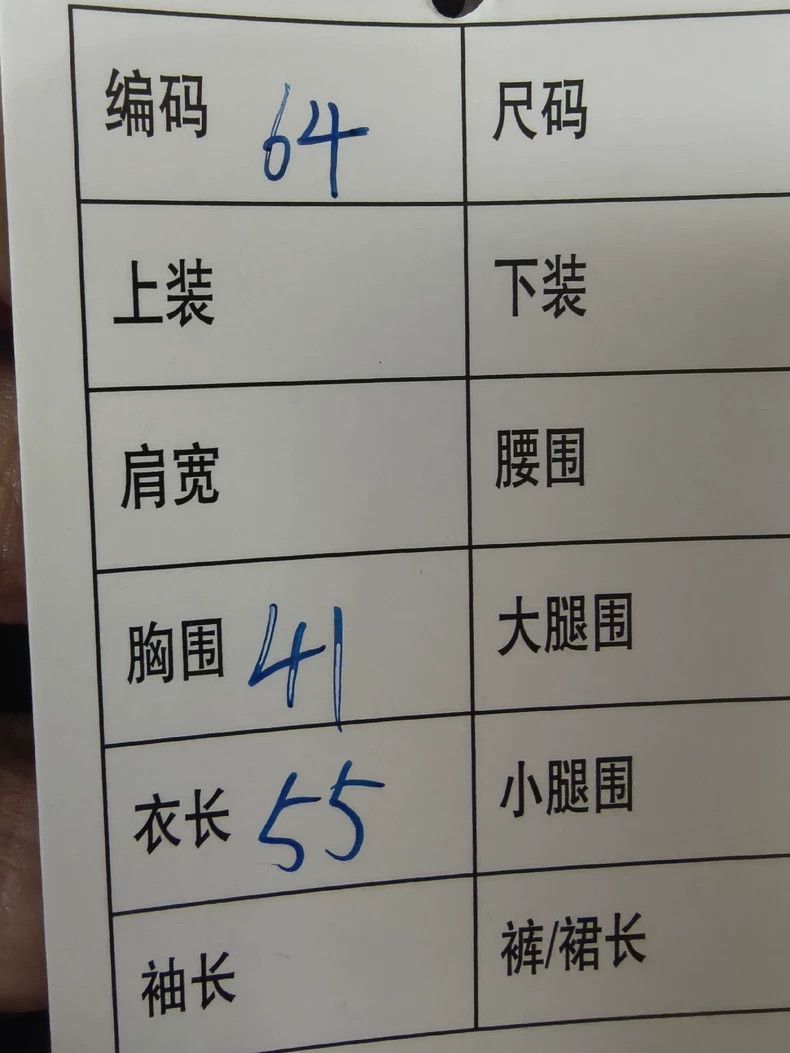 编码 64 尺码
上装 下装
肩宽 腰围
胸围 41 大腿围
衣长 55 小腿围
袖长 裤/裙长